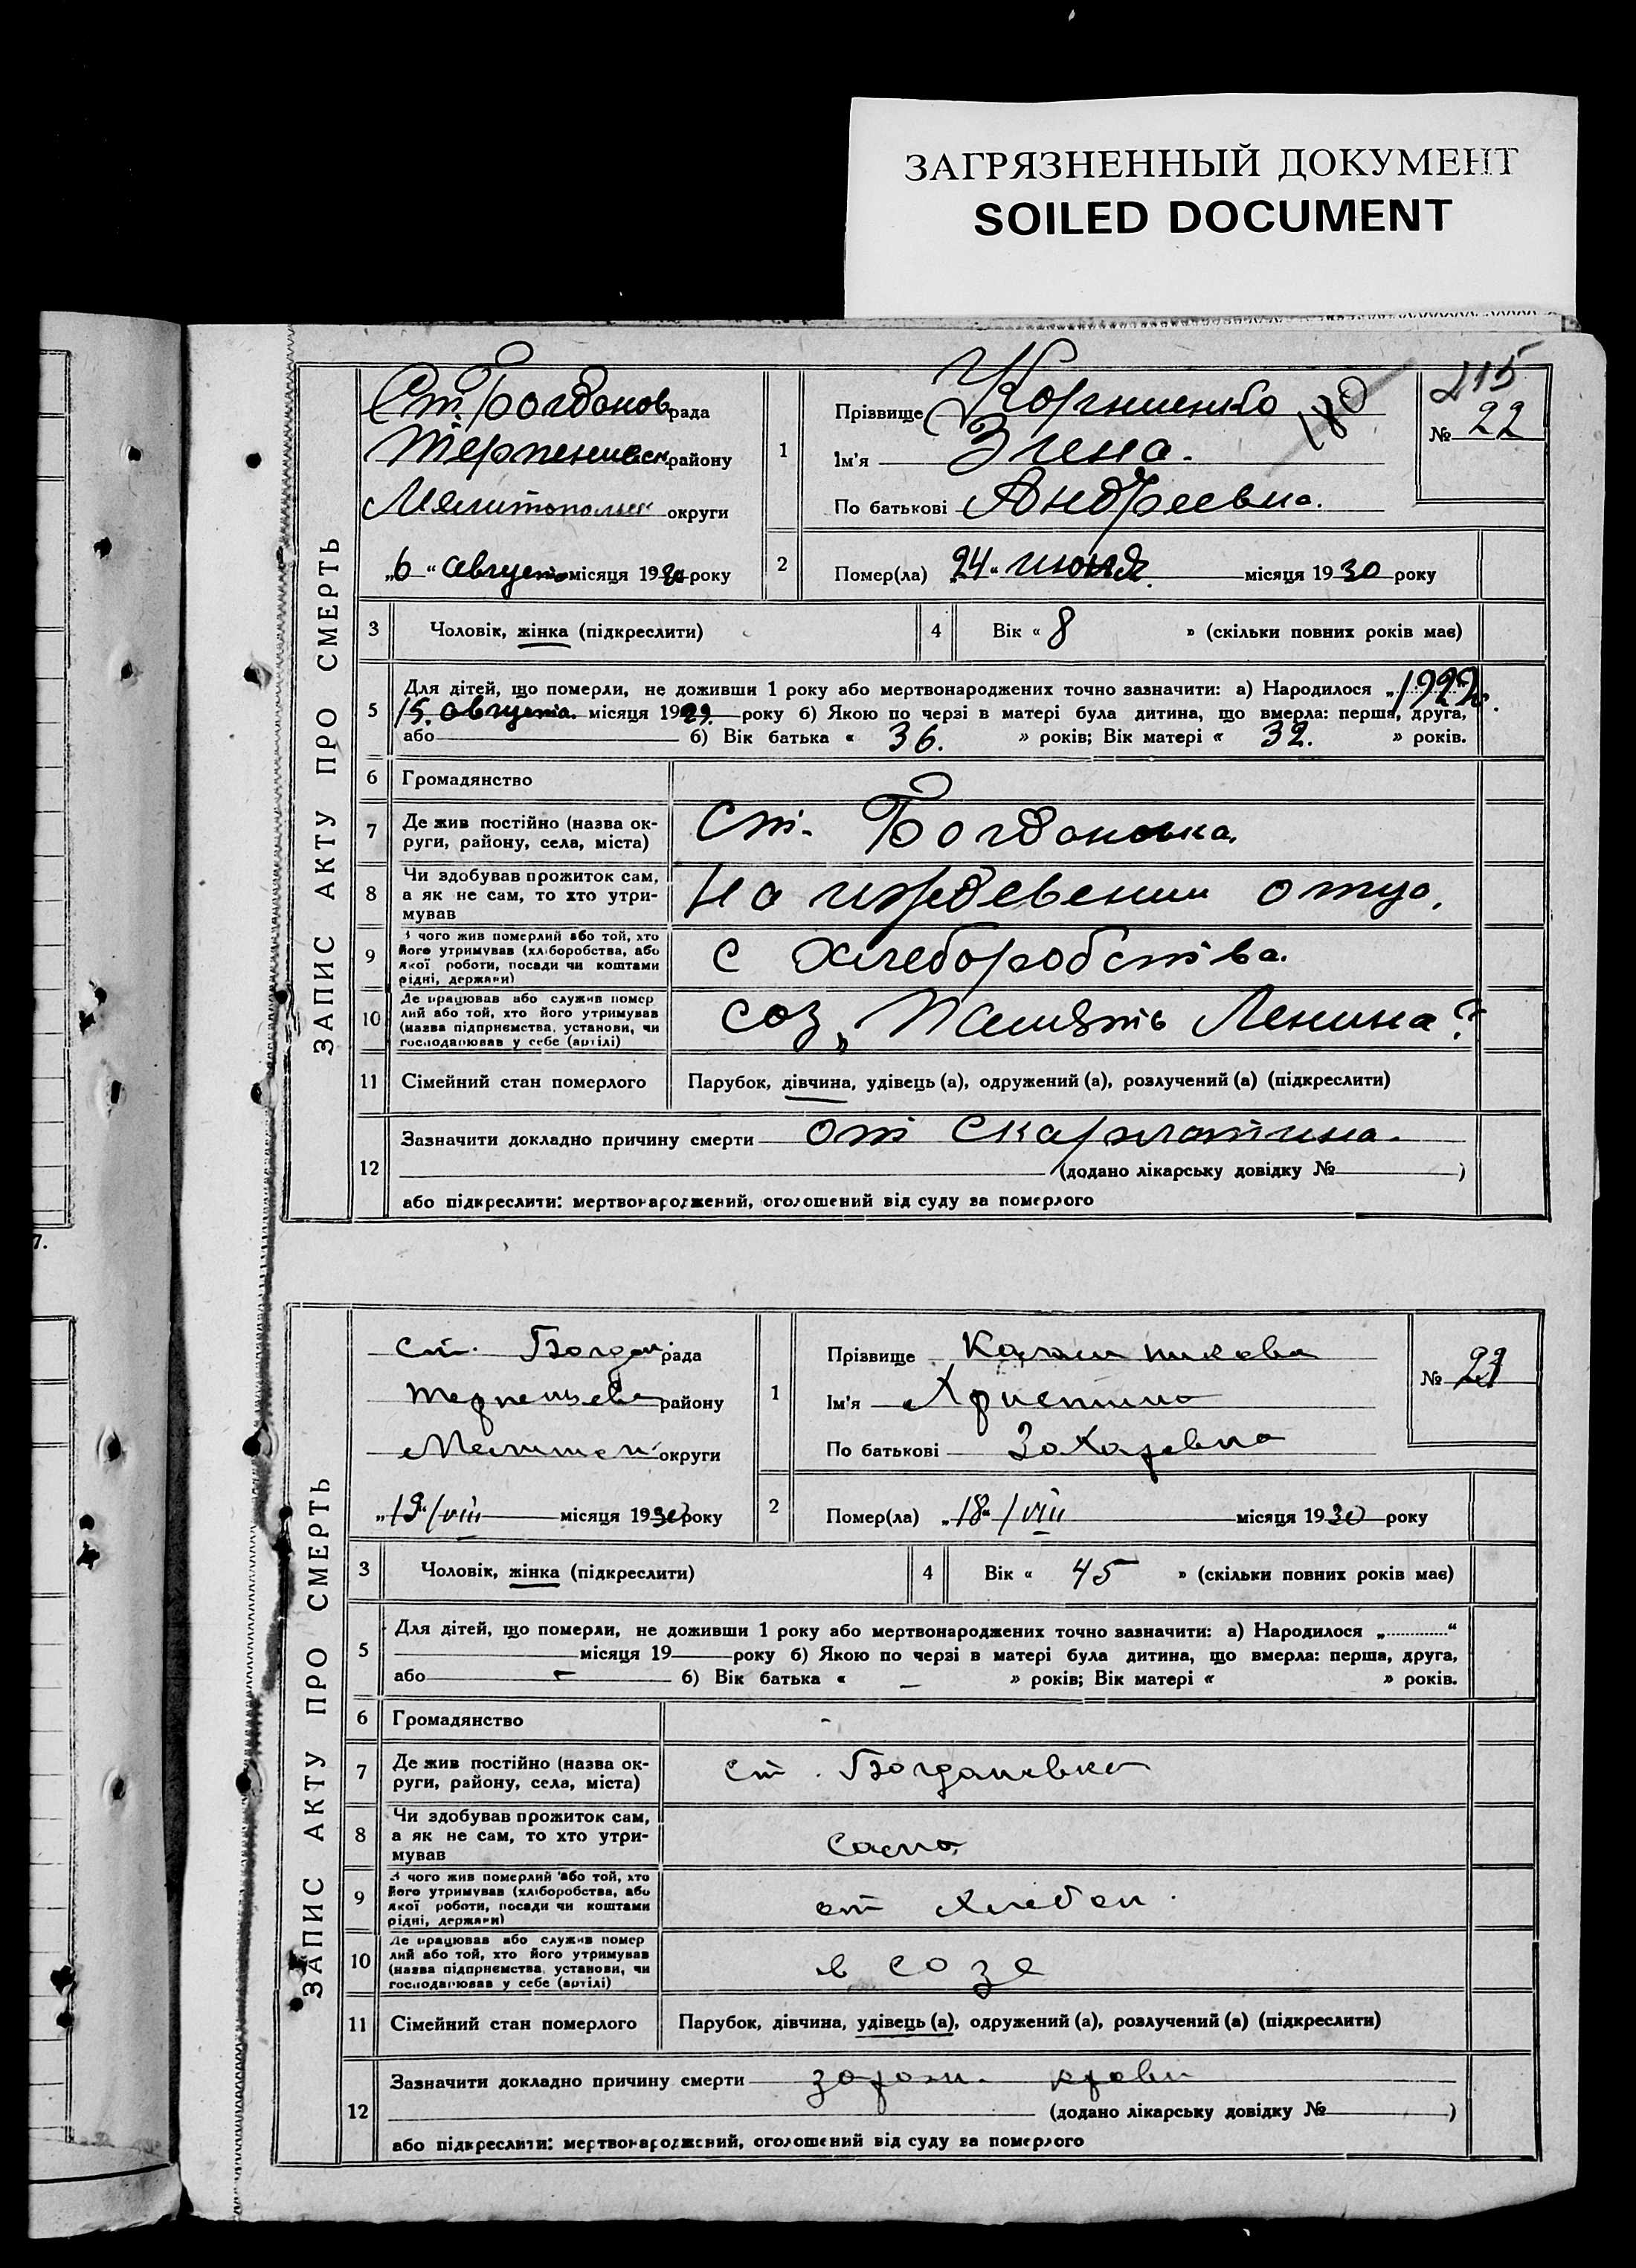 ЗАГРЯЗНЕННЫЙ ДОКУМЕНТ
SOILED DOCUMENT
215
180
ЗАПИС АКТУ ПРО СМЕРТЬ
Ст. Богданов рада
Терпениевск району
Мелитопольск округи
„6“ августа місяця 1930 року
1
Прізвище Корниенко
Ім'я Элена.
По батькові Андреевна.
№ 22
2
Помер(ла) „24“ июня місяця 1930 року
3 Чоловік, жінка (підкреслити)
4 Вік « 8 » (скільки повних років має)
5 Для дітей, що померли, не доживши 1 року або мертвонароджених точно зазначити: а) Народилося „ 1922 г.
15. августа. місяця 1929. року б) Якою по черзі в матері була дитина, що вмерла: перша, друга,
або б) Вік батька « 36. » років; Вік матері « 32. » років.
6 Громадянство
7 Де жив постійно (назва ок-
руги, району, села, міста)
Ст. Богдановка.
8 Чи здобував прожиток сам,
а як не сам, то хто утри-
мував
На иждевении отца.
9 З чого жив померлий або той, хто
його утримував (хліборобства, або
якої роботи, посади чи коштами
рідні, держави)
с хлеборобства.
10 Де працював або служив помер
лий або той, хто його утримував
(назва підприємства, установи, чи
господарював у себе (артілі)
соз „Память Ленина"
11 Сімейний стан померлого Парубок, дівчина, удівець (а), одружений (а), розлучений (а) (підкреслити)
12 Зазначити докладно причину смерти от скарлатина.
(додано лікарську довідку № )
або підкреслити: мертвонароджений, оголошений від суду за померлого
7.
ЗАПИС АКТУ ПРО СМЕРТЬ
Ст. Богдан рада
Терпениев району
Мелитоп округи
„19“/VIII місяця 1930 року
1
Прізвище Калашникова
Ім'я Христина
По батькові Захаревна
№ 23
2
Помер(ла) „18“/VIII місяця 1930 року
3 Чоловік, жінка (підкреслити)
4 Вік « 45 » (скільки повних років має)
5 Для дітей, що померли, не доживши 1 року або мертвонароджених точно зазначити: а) Народилося „............“
місяця 19 року б) Якою по черзі в матері була дитина, що вмерла: перша, друга,
або – б) Вік батька « – » років; Вік матері « » років.
6 Громадянство -
7 Де жив постійно (назва ок-
руги, району, села, міста)
ст. Богдановка
8 Чи здобував прожиток сам,
а як не сам, то хто утри-
мував
сама
9 З чого жив померлий або той, хто
його утримував (хліборобства, або
якої роботи, посади чи коштами
рідні, держави)
от хлебоп.
10 Де працював або служив помер
лий або той, хто його утримував
(назва підприємства, установи, чи
господарював у себе (артілі)
в созе
11 Сімейний стан померлого Парубок, дівчина, удівець (а), одружений (а), розлучений (а) (підкреслити)
12 Зазначити докладно причину смерти зараж. крови
(додано лікарську довідку № )
або підкреслити: мертвонароджений, оголошений від суду за померлого